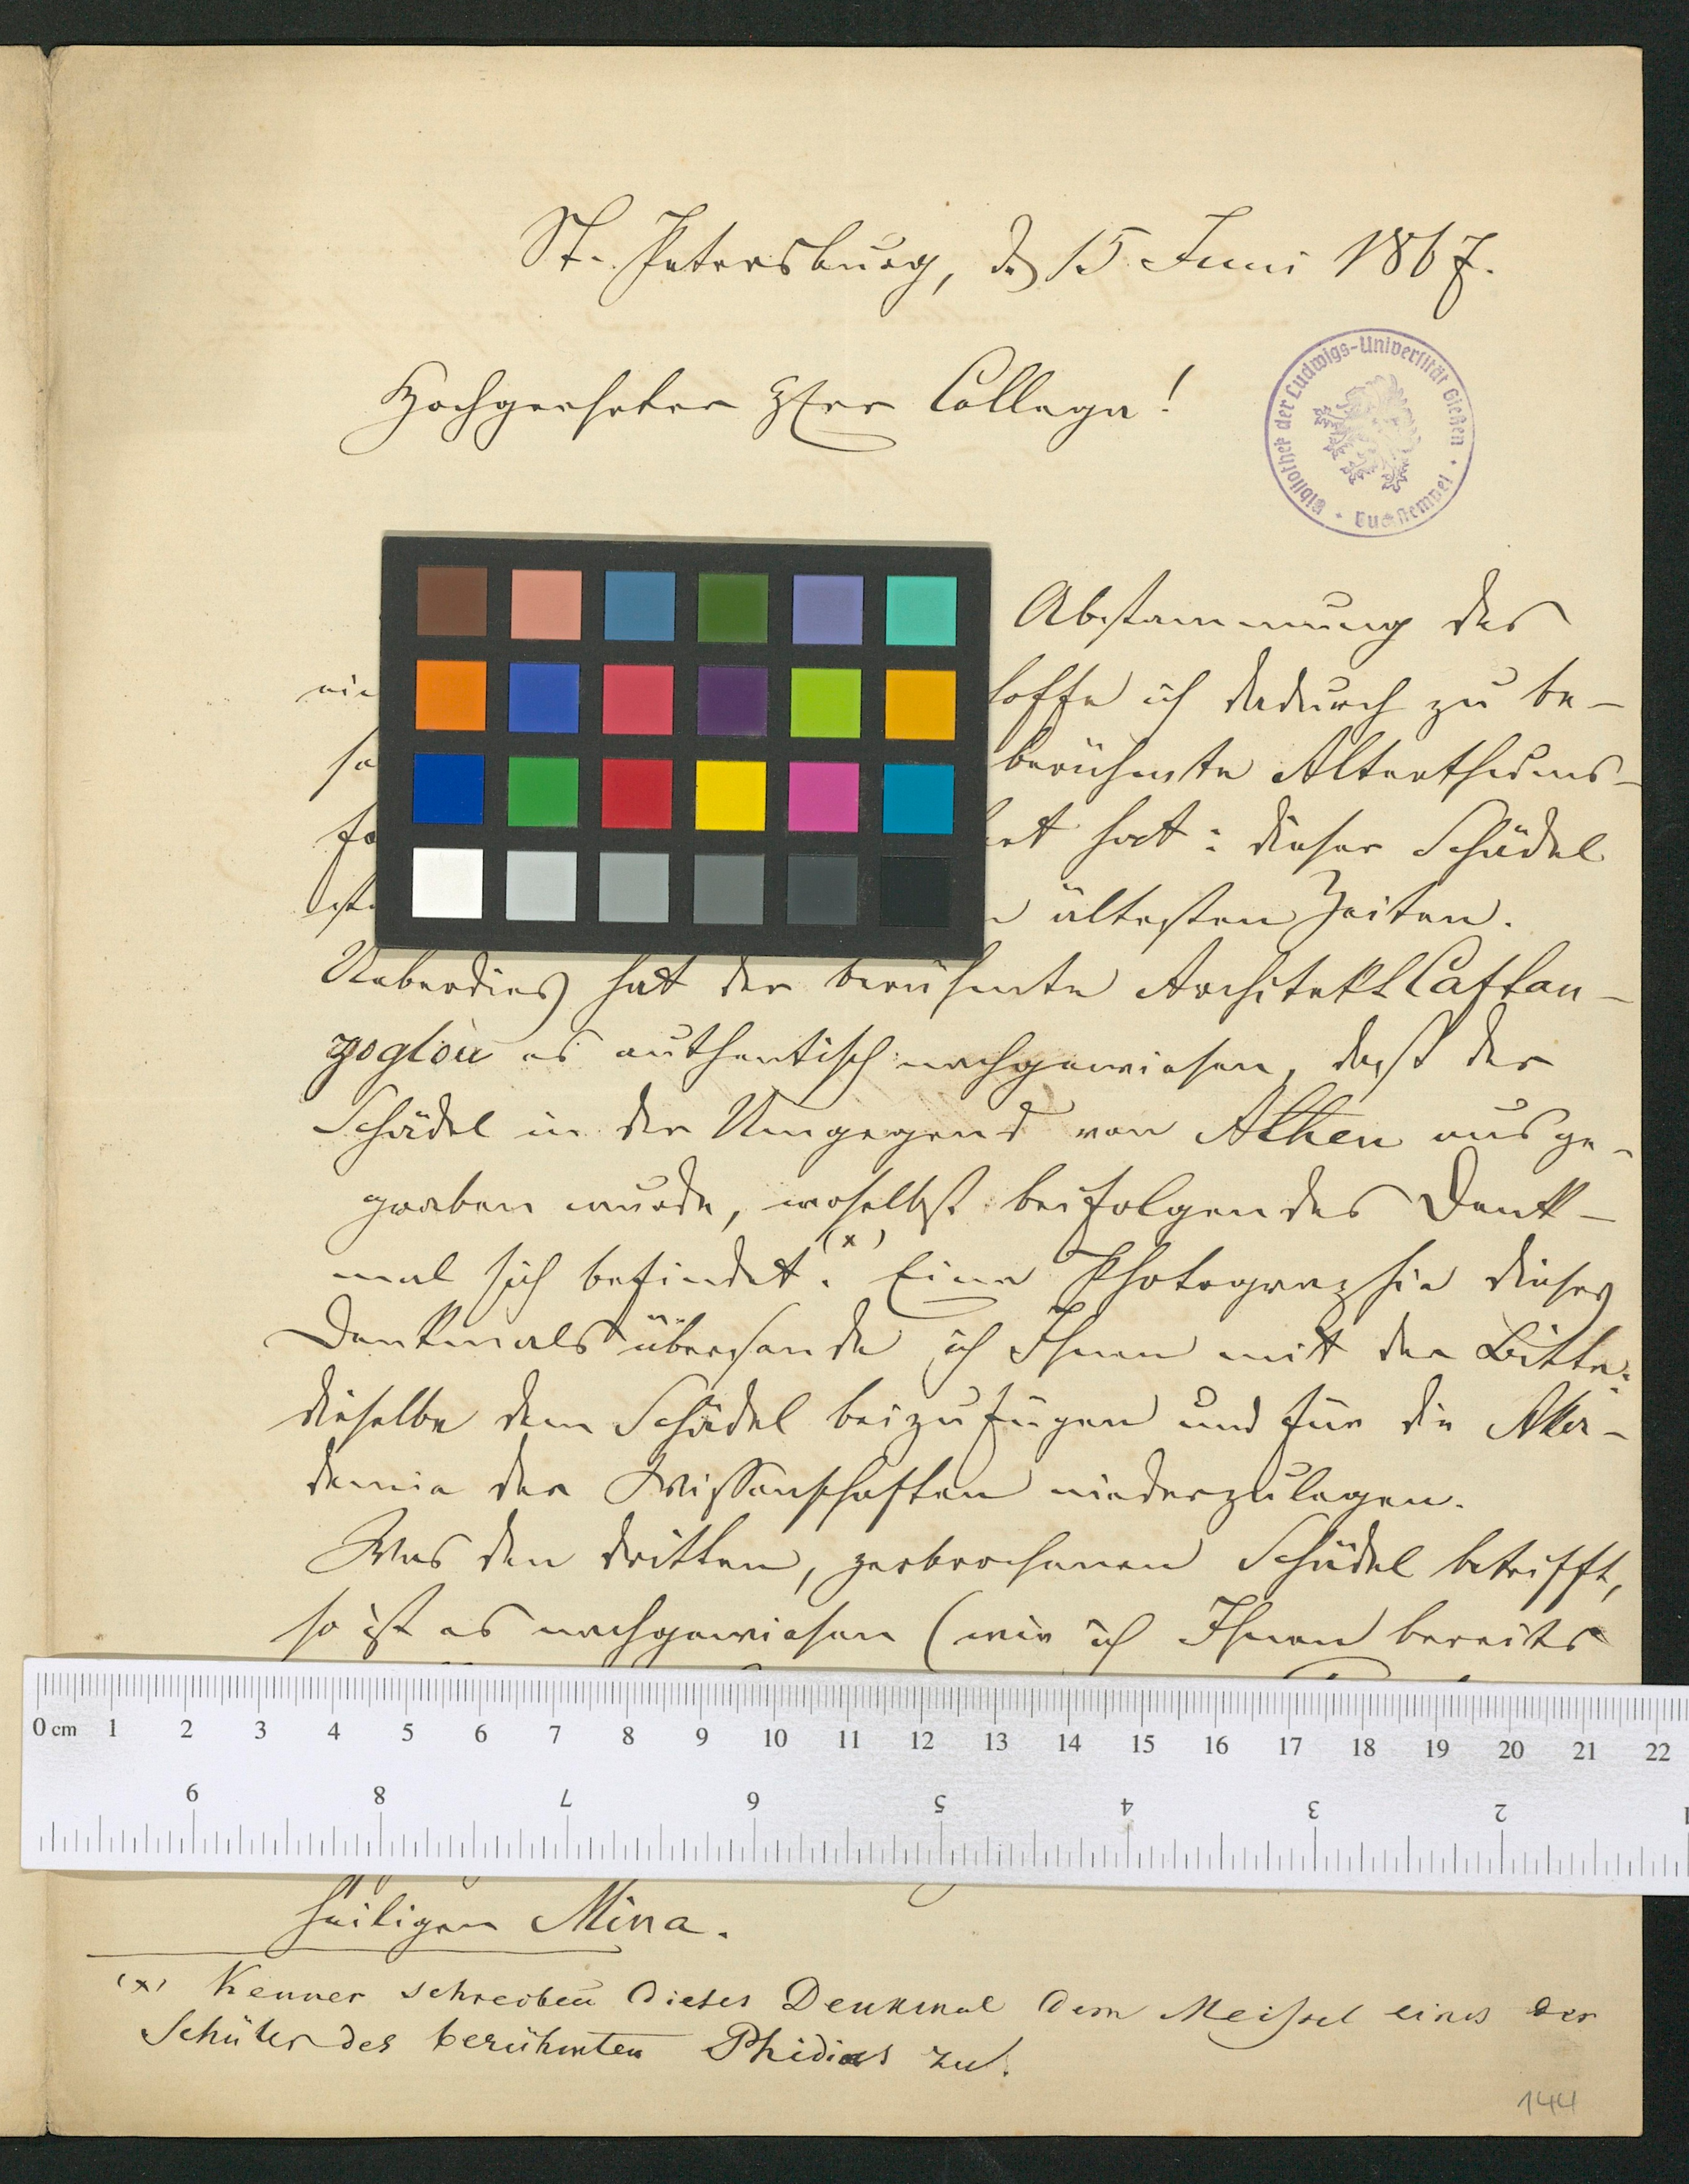 St. Petersburg, d. 15 Juni 1867.
Hochgeehrter Herr College!
Bibliothek der Ludwigs-Universität Gießen · Buchstempel ·
Abstammung des
hoffe ich dadurch zu be-
berühmte Alterthums-
hat: dieser Schädel
ältesten Zeiten.
Ueberdies hat der berühmte Architekt Caftan-
zoglou es authentisch nachgewiesen, daß der
Schädel in der Umgegend von Athen ausge-
graben wurde, woselbst beifolgendes Denk-
mal sich befindet.(x) Eine Photographie dieses
Denkmals übersende ich Ihnen mit der Bitte:
dieselbe dem Schädel beizufügen und für die Aka-
demie der Wissenschaften niederzulegen.
Was den dritten, zerbrochenen Schädel betrifft,
so ist es nachgewiesen (wie ich Ihnen bereits
0 cm 1 2 3 4 5 6 7 8 9 10 11 12 13 14 15 16 17 18 19 20 21 22
9 8 7 6 5 4 3 2 1
heiligen Mina.
(x) Kenner schreiben dieses Denkmal dem Meißel eines der
Schüler des berühmten Phidias zu.
144